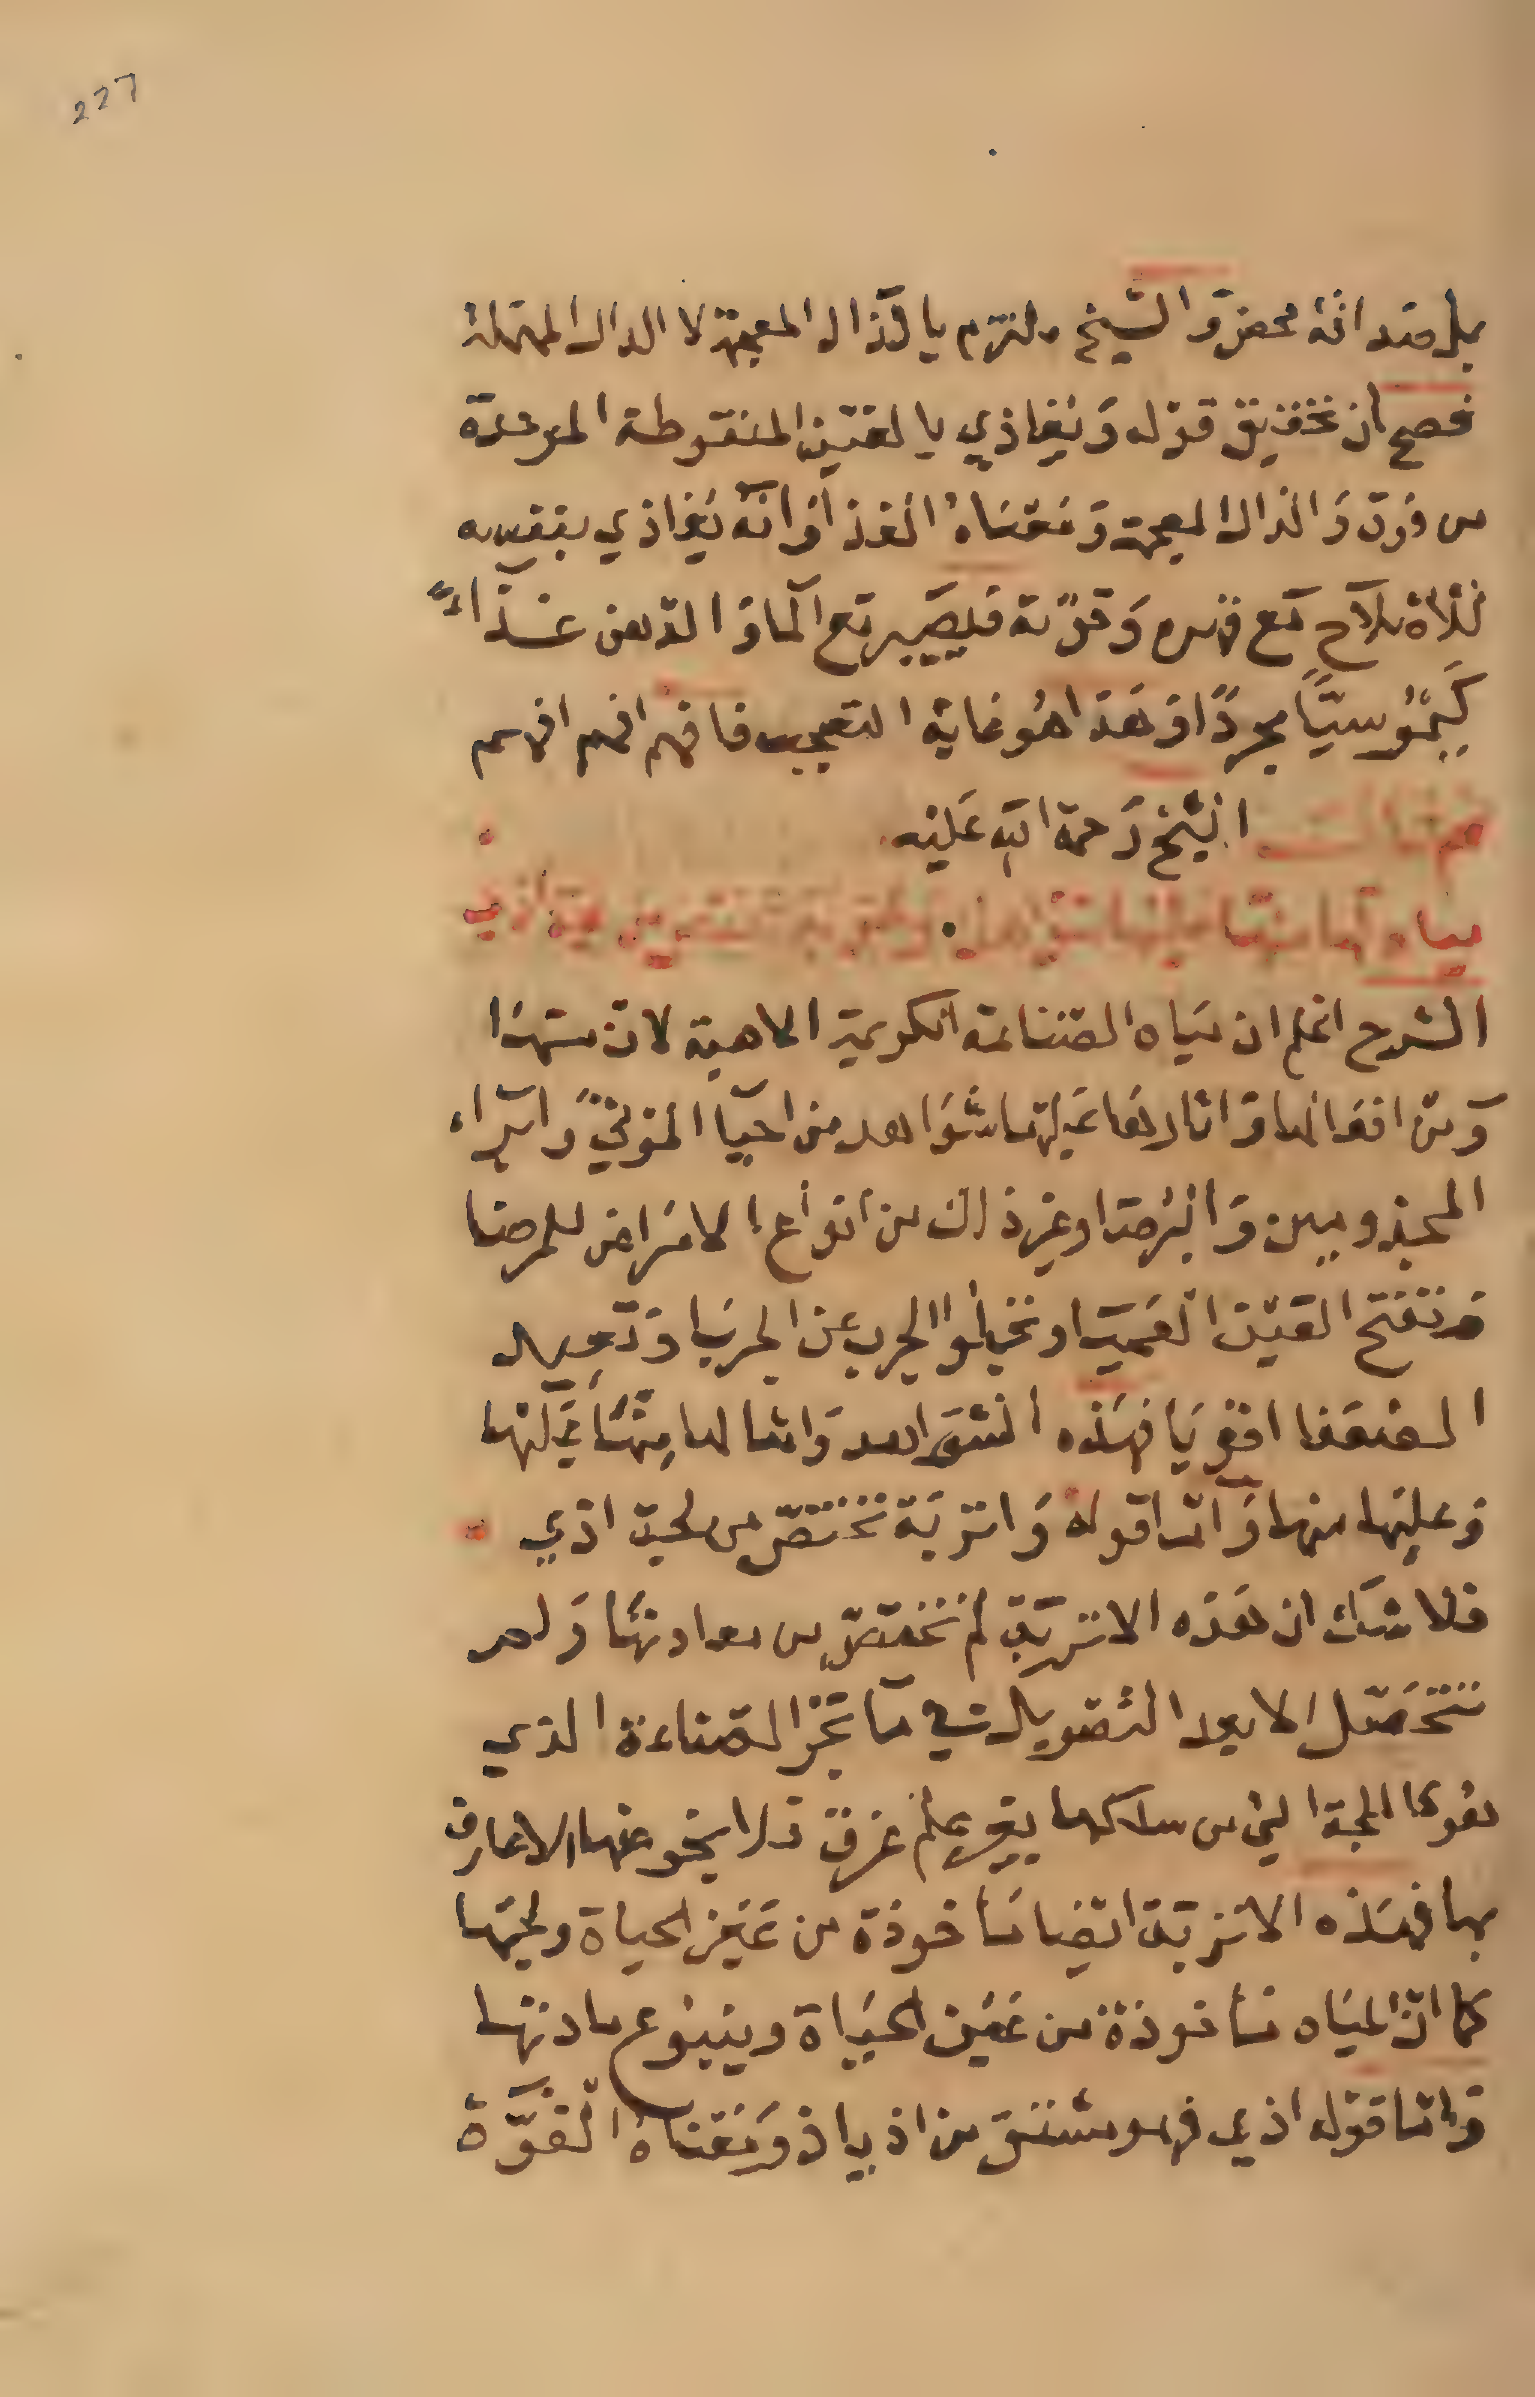 227
بل ضد انه محض والشيخ ملتزم بالذال المعجمة لا الدال المهملة
فصح ان تحقيق قوله ويغاذي بالغين المنقوطة الموحدة
من فوق والذال المعجمة ومعناه الغذا وانه يغاذي بنفسه
ثلاثة املاح مع وقوته فيصير مع الماء والدهن غذاءً
كيموسيّا مجردا وهذا هو غاية التعجب فافهم افهم افهم
الشيخ رحمة الله عليه
مياه لها منها عليها شواهد واتربة تختص من اذي
الشرح اعلم ان مياه الصناعة الكريمة الاهية لان منها
ومن افعالها واثارها عليها شواهد من احيا الموتى وابراء
المجذومين والبرصا وغير ذالك من انواع الامراض للمرضا
وتفتح العين العميا وتجلوا الجرب عن الجربا وتعيد
الضعفا اقويا فهذه الشواهد وامثالها منها عليها
وعليها منها واما قوله واتربة تختص من لجة اذي
فلا شك ان هذه الاتربة لم تختص من معادنها ولم
تتحصل الا بعد التصويل في ماء بحر الصناعة الذي
هو كاللجة التي من سلكها بغير علم غرق ولا ينجو منها الا عارف
بها فهذه الاتربة ايضا مأخوذة من عين الحياة ولجتها
كما ان المياه مأخوذة من عين الحياة وينبوع مادتها
واما قوله اذي فهو مشتق من اذ ياذ ومعناه القوة